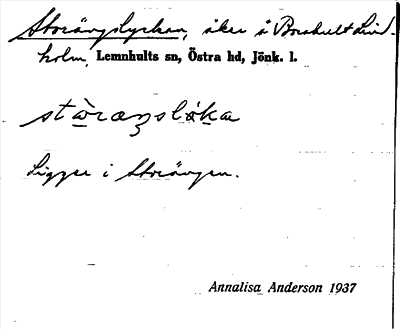 Storängslyckan, åker å Boahult Lind-
holm, Lemnhults sn, Östra hd, Jönk. l.
stàraŋslø̀ka
Ligger i Storängen.
Annalisa Anderson 1937